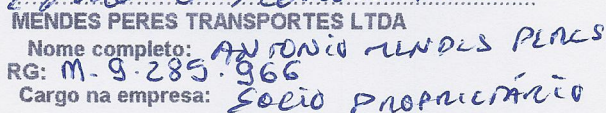 MENDES PERES TRANSPORTES LTDA
Nome completo: ANTONIO MENDES PERES
RG: M-9.285.966
Cargo na empresa: SOCIO PROPRIETÁRIO